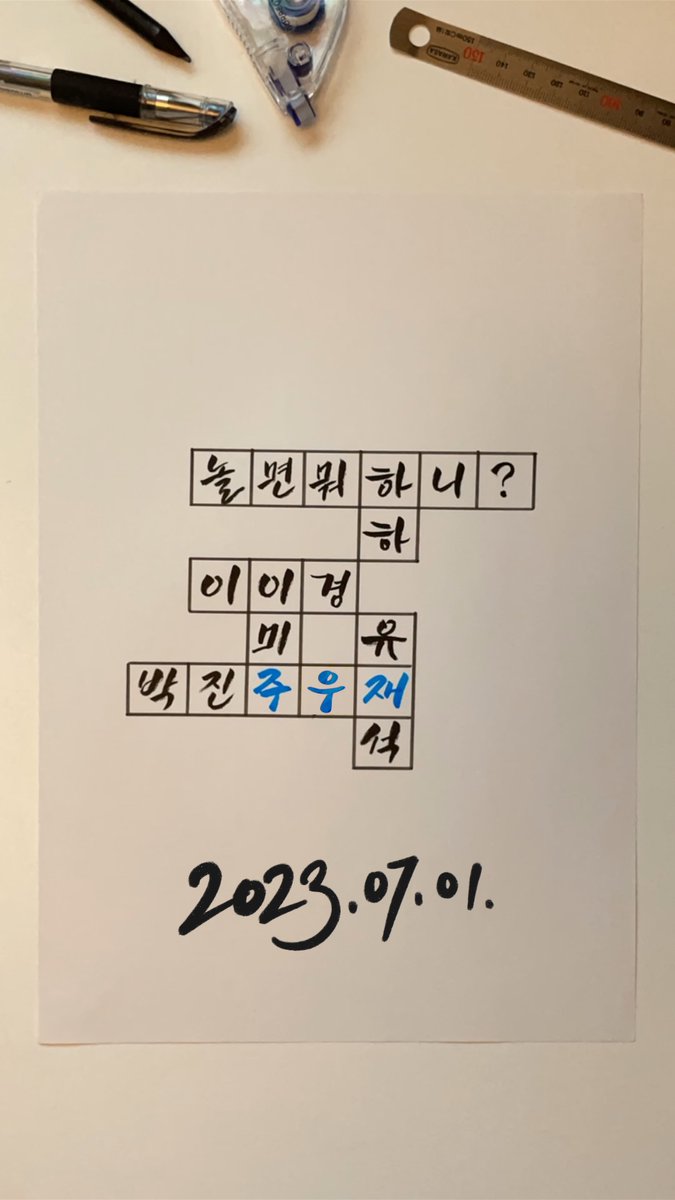 KAWASA
150
140
130
120
놀면뭐하니?
하
이이경
미 유
박진주우재
석
2023.07.01.